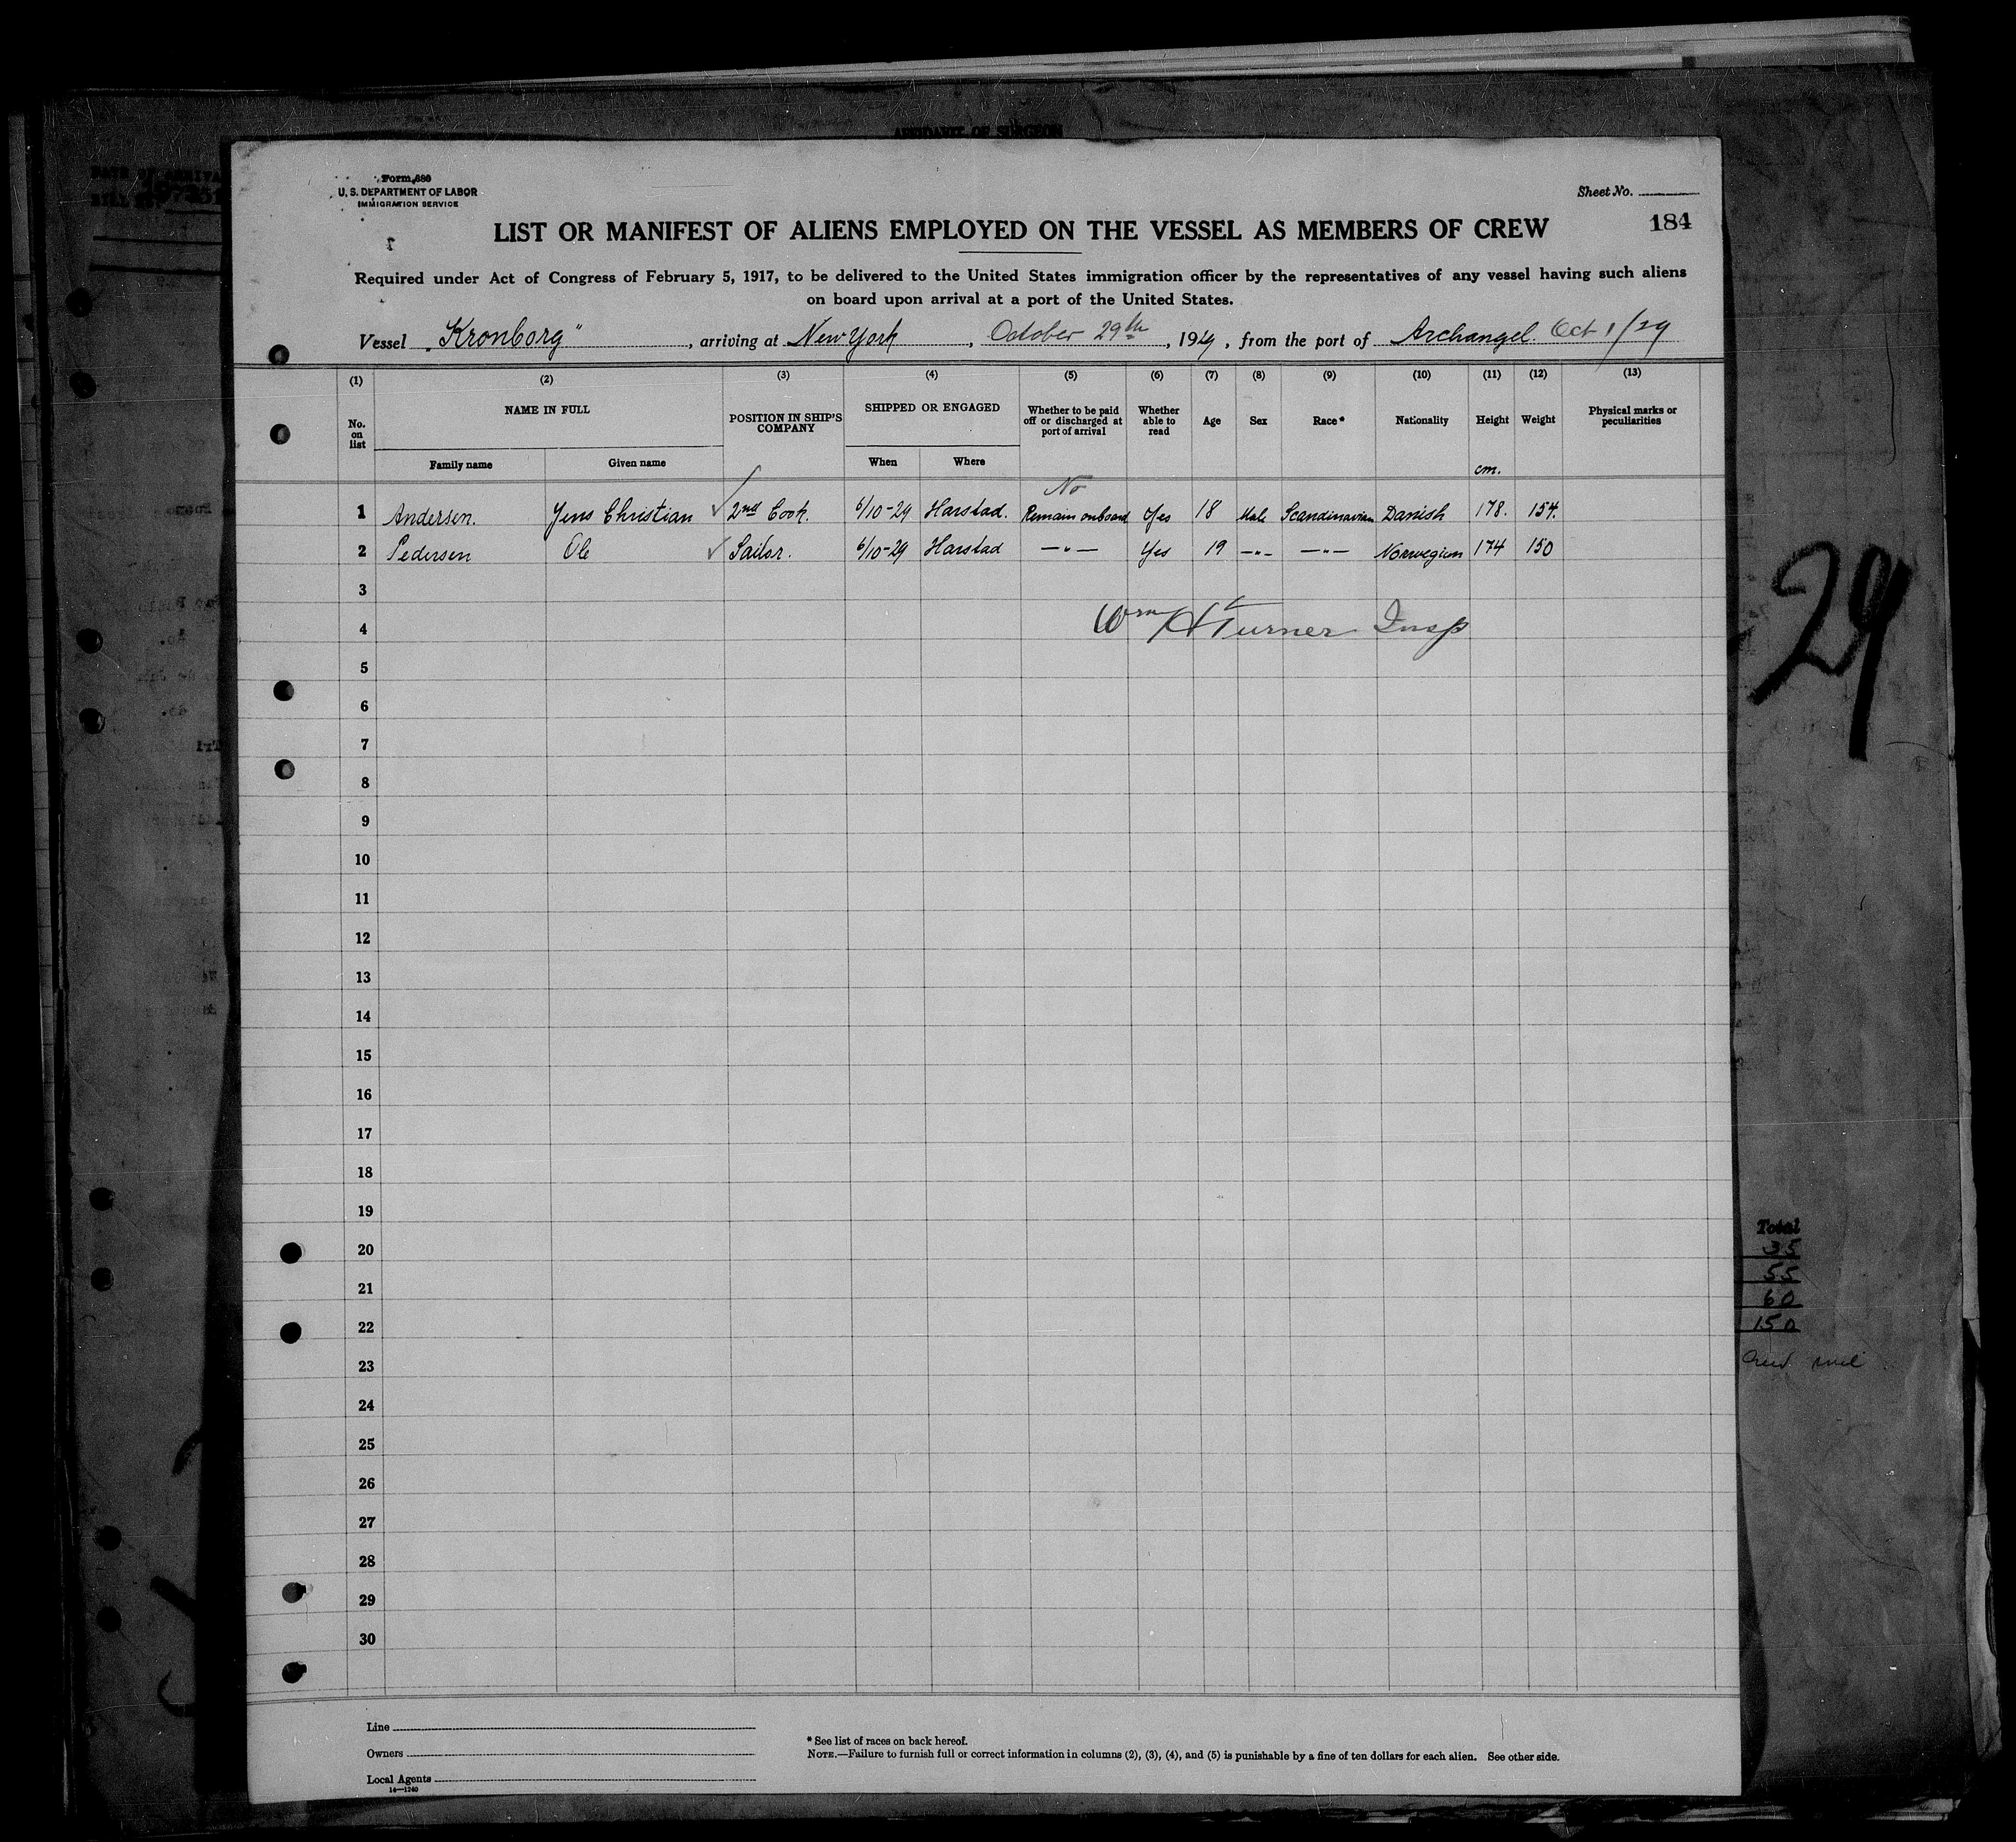 AFFIDAVIT OF SURGEON
Form 680
U. S. DEPARTMENT OF LABOR
IMMIGRATION SERVICE
Sheet No.
184
LIST OR MANIFEST OF ALIENS EMPLOYED ON THE VESSEL AS MEMBERS OF CREW
Required under Act of Congress of February 5, 1917, to be delivered to the United States immigration officer by the representatives of any vessel having such aliens
on board upon arrival at a port of the United States.
Vessel "Kronborg", arriving at New York, October 29th, 1929, from the port of Archangel. Oct 1/29
(1) (2) (3) (4) (5) (6) (7) (8) (9) (10) (11) (12) (13)
No. on list NAME IN FULL POSITION IN SHIP'S COMPANY SHIPPED OR ENGAGED Whether to be paid off or discharged at port of arrival Whether able to read Age Sex Race* Nationality Height Weight Physical marks or peculiarities
Family name Given name When Where cm.
No
1 Andersen. Jens Christian ✓ 2nd Cook. 6/10-29 Harstad. Remain onboard Yes 18 Male Scandinavian Danish 178. 154.
2 Pedersen Ole ✓ Sailor. 6/10-29 Harstad —"— Yes 19 —"— —"— Norwegian 174 150
3
4 Wm H Turner Insp
5
6
7
8
9
10
11
12
13
14
15
16
17
18
19
20
21
22
23
24
25
26
27
28
29
30
29
Total
35
55
60
150
Line
Owners
Local Agents
14—1240
* See list of races on back hereof.
NOTE.—Failure to furnish full or correct information in columns (2), (3), (4), and (5) is punishable by a fine of ten dollars for each alien. See other side.